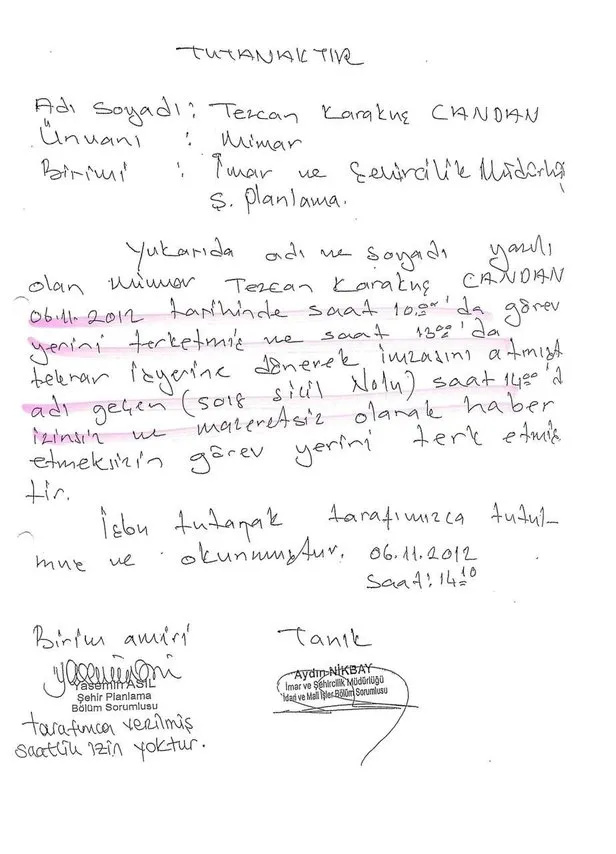 TUTANAKTIR
Adı Soyadı : Tezcan Karakuş CANDAN
Ünvanı : Mimar
Birimi : İmar ve Şehircilik Müdürlüğü
Ş. Planlama.
Yukarıda adı ve soyadı yazılı
olan Mimar Tezcan Karakuş CANDAN
06.11.2012 tarihinde saat 10.00'da görev
yerini terketmiş ve saat 13.00'da
tekrar işyerine dönerek imzasını atmıştır
adı geçen (5018 sicil Nolu) saat 14.00'd
izinsiz ve mazeretsiz olarak haber
etmeksizin görev yerini terk etmiş
tir.
İşbu tutanak tarafımızca tutul-
muş ve okunmuştur. 06.11.2012
Saat: 14.10
Birim amiri Tanık
Yasemin ASİL
Şehir Planlama
Bölüm Sorumlusu
Aydın NİKBAY
İmar ve Şehircilik Müdürlüğü
İdari ve Mali İşler Bölüm Sorumlusu
tarafımca verilmiş
saatlik izin yoktur.